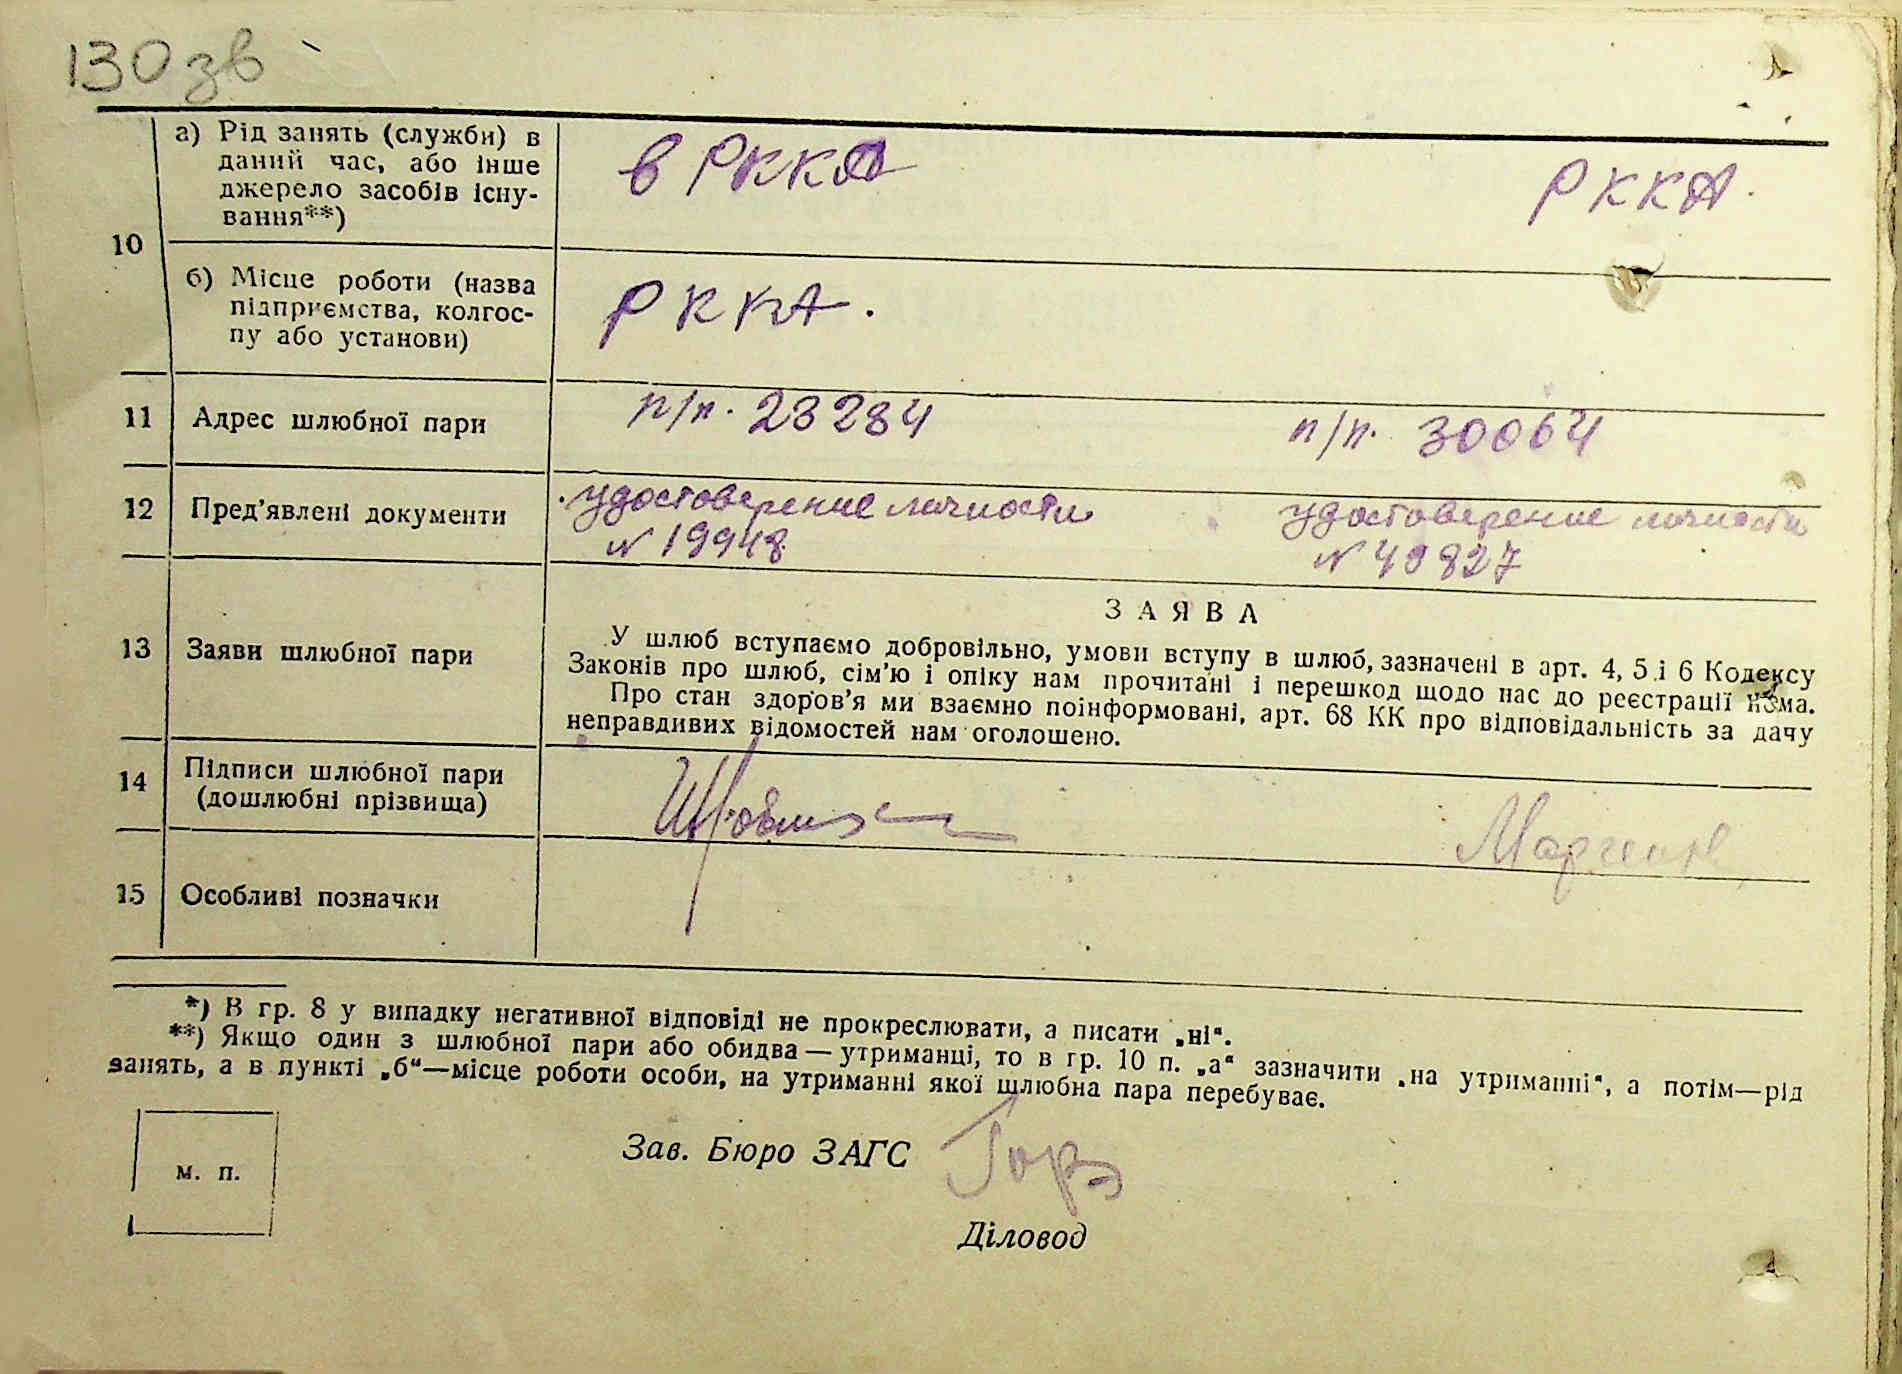 130 зв
10
а) Рід занять (служби) в
даний час, або інше
джерело засобів існу-
вання**)
в РККА
РККА.
б) Місце роботи (назва
підприємства, колгос-
пу або установи)
РККА.
11
Адрес шлюбної пари
п/п. 23284
п/п. 30064
12
Пред'явлені документи
удостоверение личности
N 19948
удостоверение личности
N 49827
13
Заяви шлюбної пари
ЗАЯВА
У шлюб вступаємо добровільно, умови вступу в шлюб, зазначені в арт. 4, 5 і 6 Кодексу
Законів про шлюб, сім'ю і опіку нам прочитані і перешкод щодо нас до реєстрації нема.
Про стан здоров'я ми взаємно поінформовані, арт. 68 КК про відповідальність за дачу
неправдивих відомостей нам оголошено.
14
Підписи шлюбної пари
(дошлюбні прізвища)
15
Особливі позначки
*) В гр. 8 у випадку негативної відповіді не прокреслювати, а писати „ні“.
**) Якщо один з шлюбної пари або обидва — утриманці, то в гр. 10 п. „а“ зазначити „на утриманні“, а потім—рід
занять, а в пункті „б“—місце роботи особи, на утриманні якої шлюбна пара перебуває.
м. п.
Зав. Бюро ЗАГС
Діловод